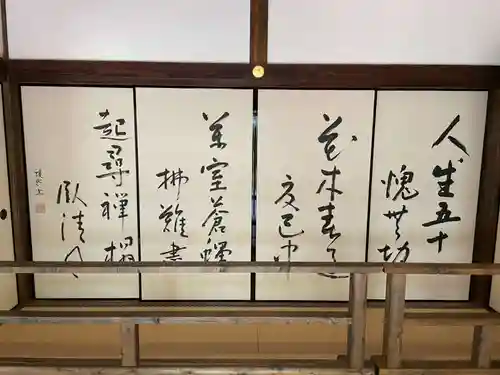 人生五十
愧無功
花木春過
夏已中
満室蒼蠅
拂難
起尋禪榻
臥清